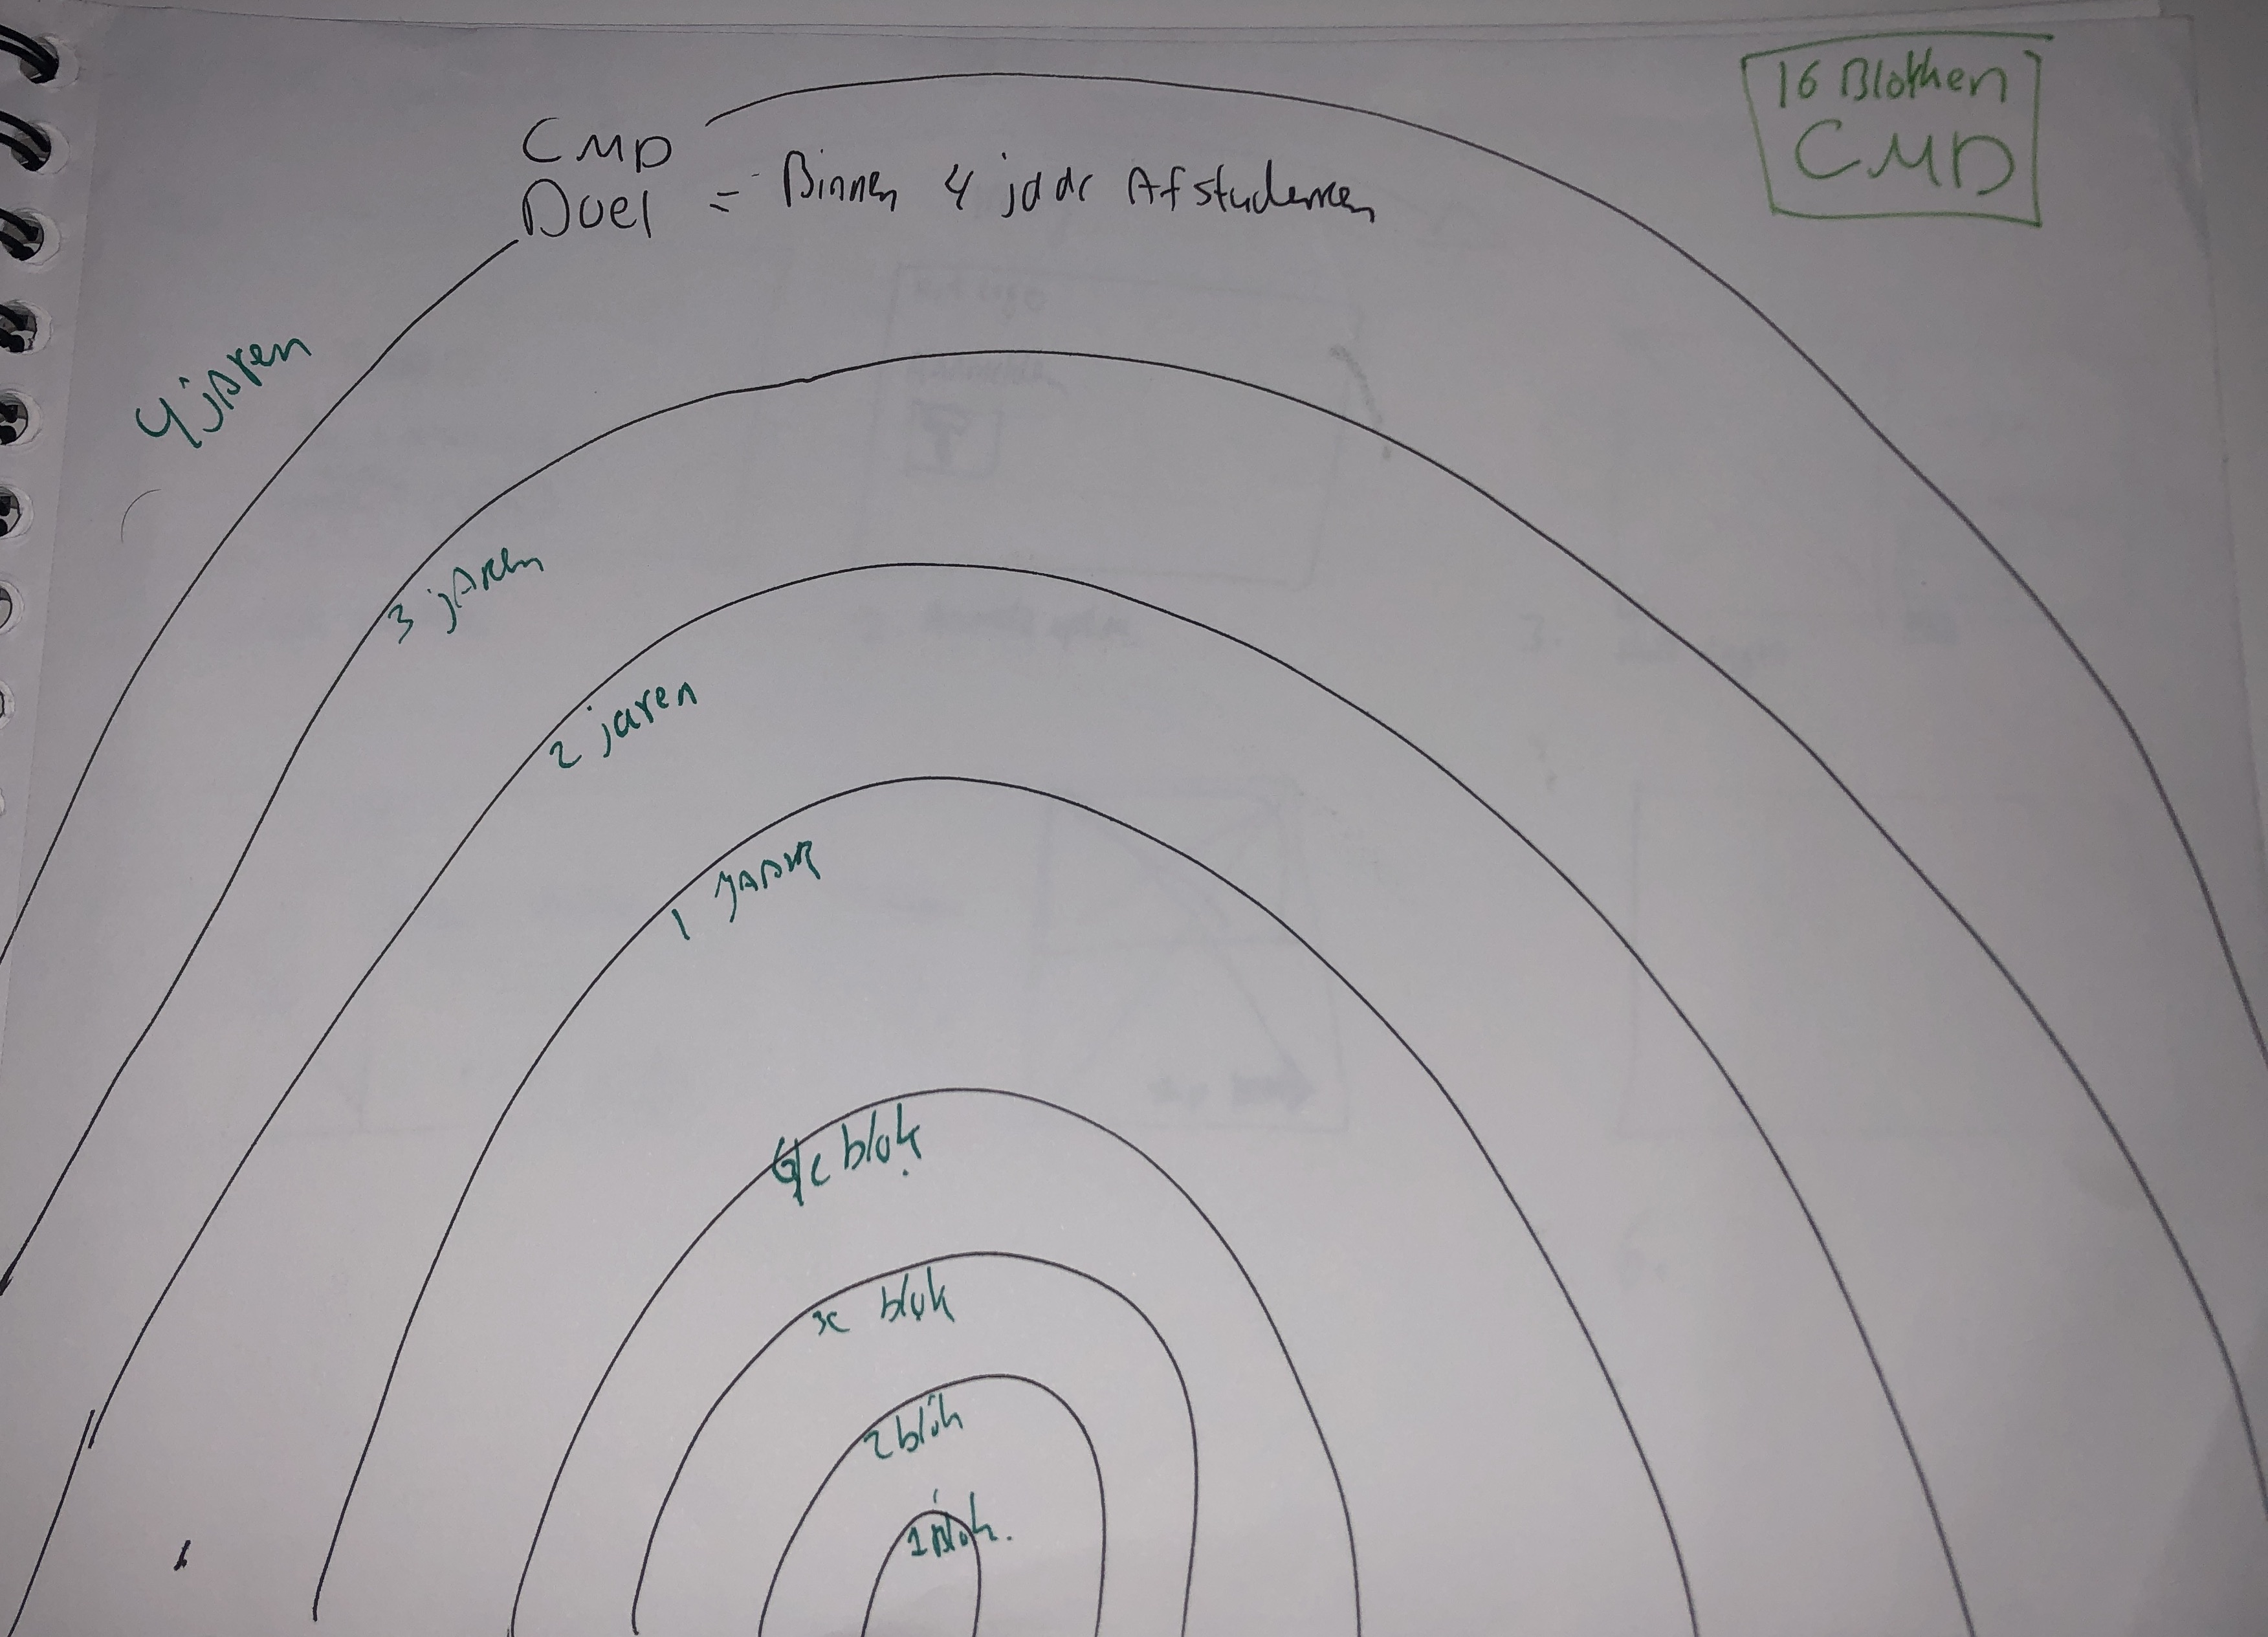 16 Blokken
CMD
CMD
Doel = Binnen 4 jaar Afstuderen
4 jaren
3 jaren
2 jaren
1 jaar
4e blok
3e blok
2 blok
1 Blok.